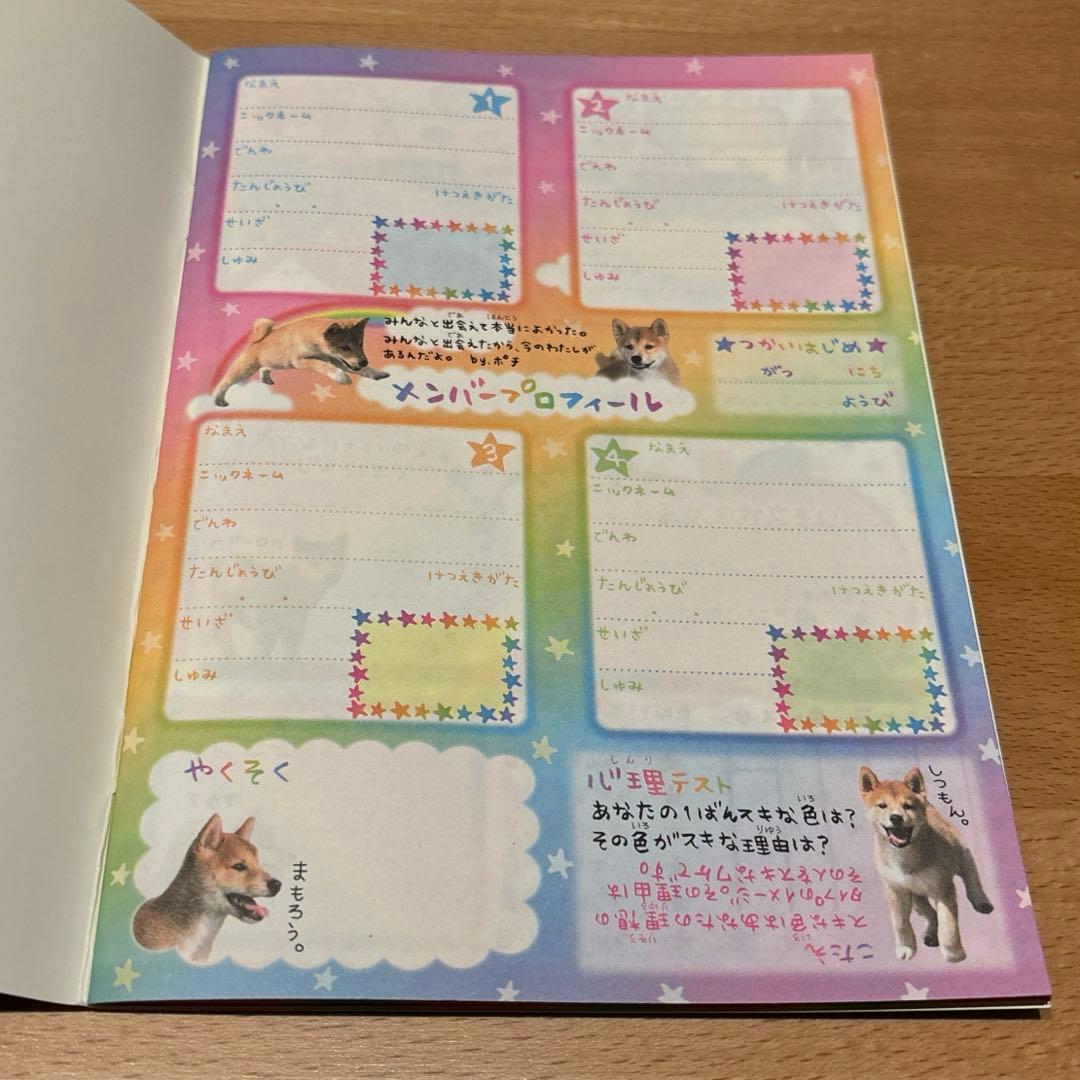 なまえ
1
ニックネーム
でんわ
たんじょうび けつえきがた
せいざ
しゅみ
2 なまえ
ニックネーム
でんわ
たんじょうび けつえきがた
せいざ
しゅみ
みんなと出会えて本当によかった。
みんなと出会えたから、今のわたしが
あるんだよ。 by.ポチ
メンバープロフィール
★つかいはじめ★
がつ にち
ようび
なまえ
3
ニックネーム
でんわ
たんじょうび けつえきがた
せいざ
しゅみ
4 なまえ
ニックネーム
でんわ
たんじょうび けつえきがた
せいざ
しゅみ
やくそく
まもろう。
心理テスト
しつもん。
あなたの1ばんスキな色は?
その色がスキな理由は?
こたえ
スキな色はあなたの理想の
タイプのイメージ。その理由は
その人をスキなワケです。